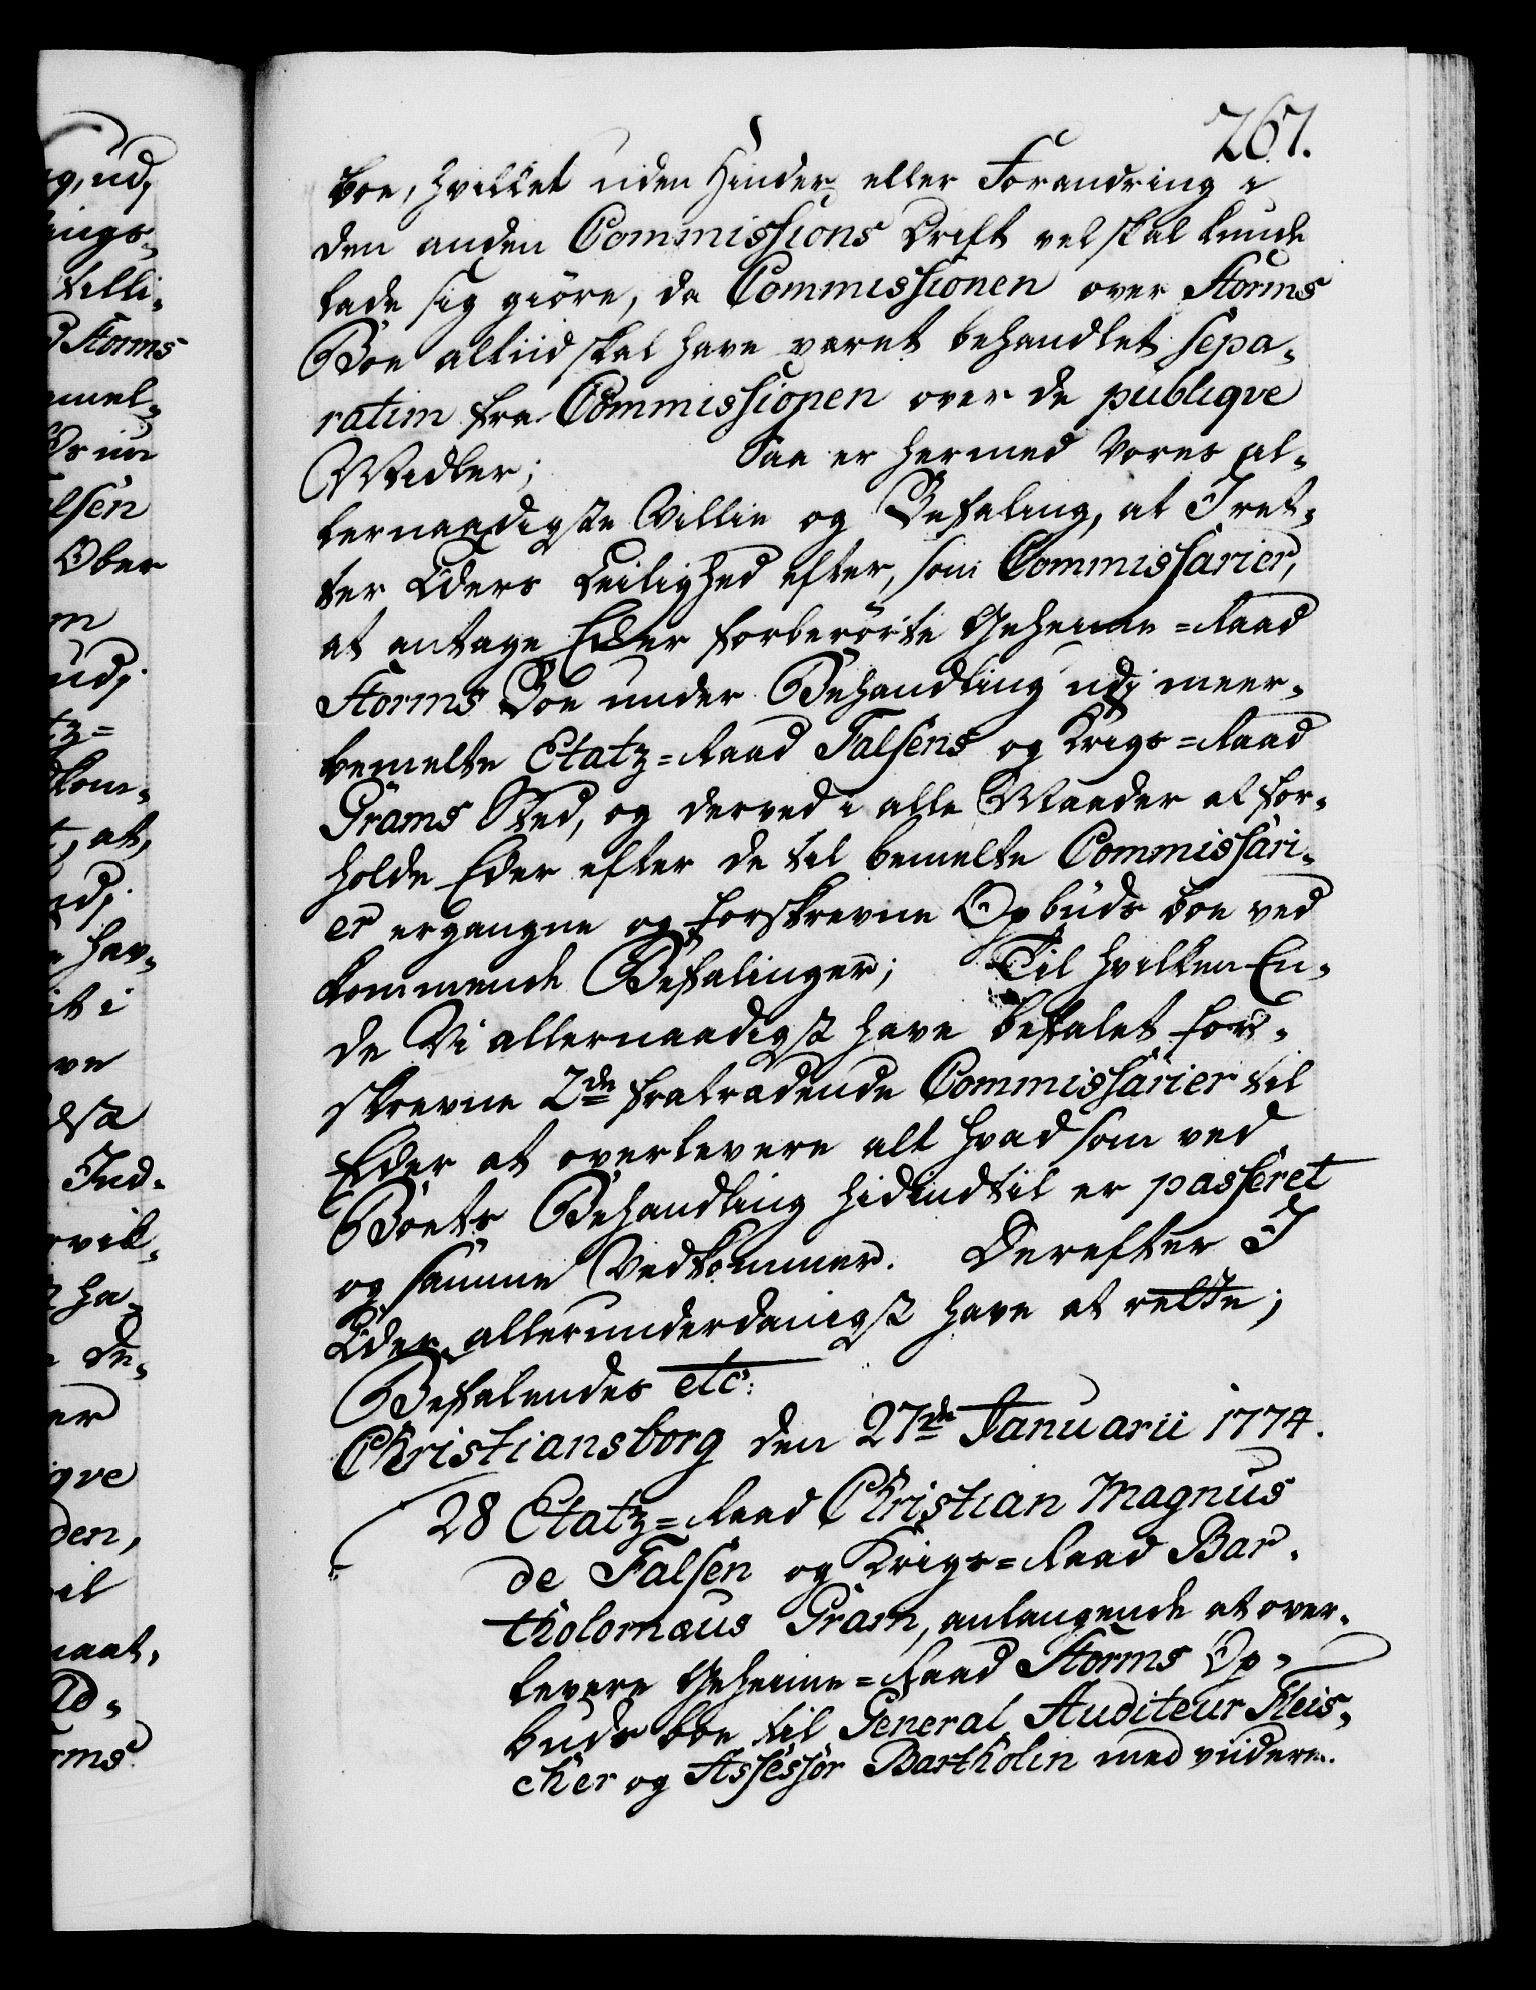 267.
boe, hvilket uden Hinder eller Forandring i
den anden Commissions Drift vel skal kunde
lade sig giöre, da Commissionen over Storms
Boe altiid skal have været behandlet sepa-
ratim fra Commissionen over de publiqve
Midler; Saa er hermed Vores al-
lernaadigste Villie og Befaling, at I ret-
ter Eders Leilighed efter, som Commissarier,
at antage Eder forberörte Geheime-Raad
Storms Boe under Behandling udj meer-
bemelte Etatz-Raad Falsens og Krigs-Raad
Grams Sted, og derved i alle Maader at for-
holde Eder efter de til bemelte Commissari-
er ergangne og forskrevne Opbuds boe ved
kommende Befalinger; Til hvilken En-
de Vi allernaadigst have befalet for-
skrevne 2de fratrædende Commissarier til
Eder at overlevere alt hvad som ved
Boets Behandling hidindtil er passeret
og samme Vedkommer. Derefter I
Eder allerunderdanigst have at rette;
Befalendes etc:
Christiansborg den 27de Januarii 1774.
28 Etatz-Raad Christian Magnus
de Falsen og Krigs-Raad Bar-
tholomæus Gram, anlangende at over-
levere Geheime-Raad Storms Op-
buds boe til General Auditeur Fleis-
cher og Assessor Bartholin med viidere.